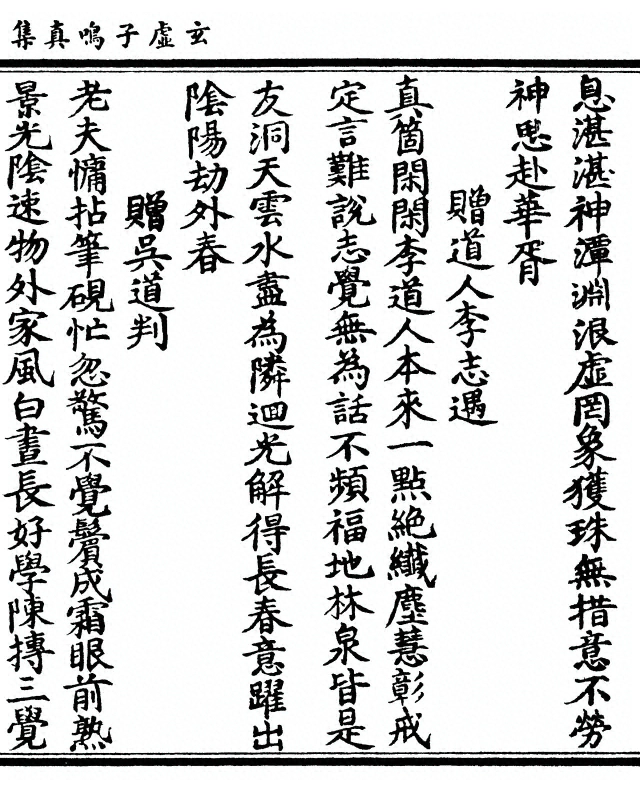 玄虛子鳴真集
息湛湛神潭淵浪虛罔象獲珠無措意不勞
神思赴華胥
贈道人李志遇
真箇閑閑李道人本來一點絶纖塵慧彰戒
定言難說志覺無為話不頻福地林泉皆是
友洞天雲水盡為隣迴光解得長春意躍出
陰陽劫外春
贈吳道判
老夫慵拈筆硯忙忽驚不覺鬢成霜眼前熟
景光陰速物外家風白晝長好學陳摶三覺